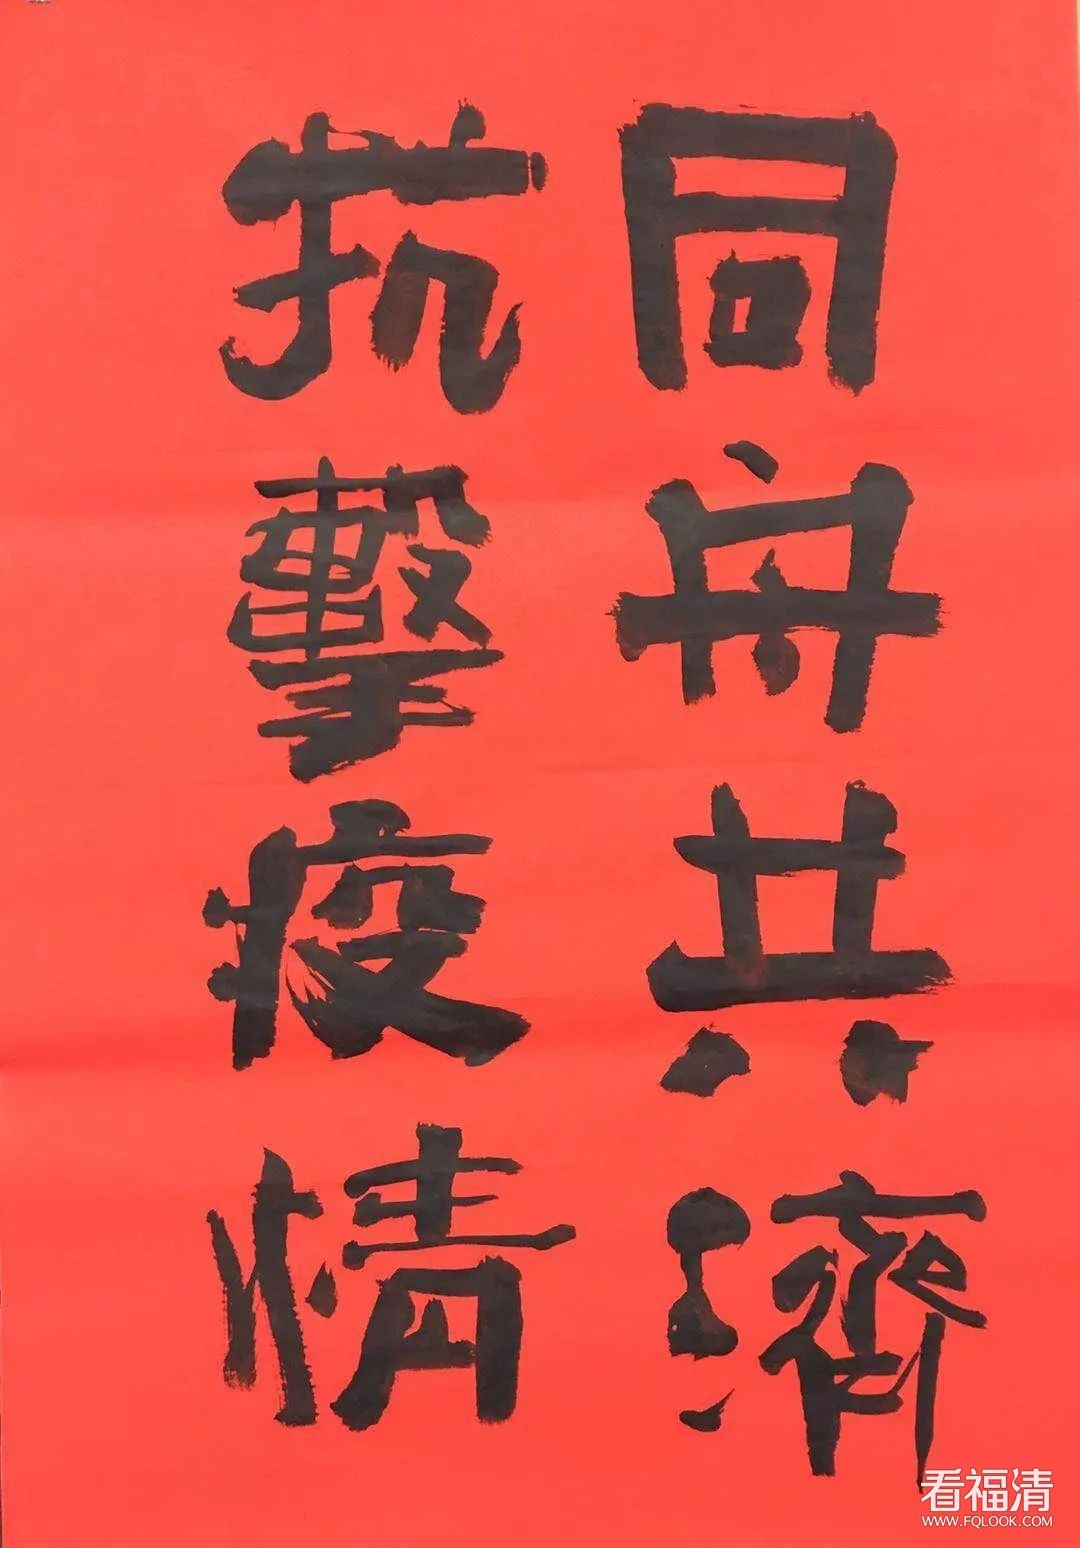 同舟共濟
抗擊疫情
看福清
WWW.FQLOOK.COM